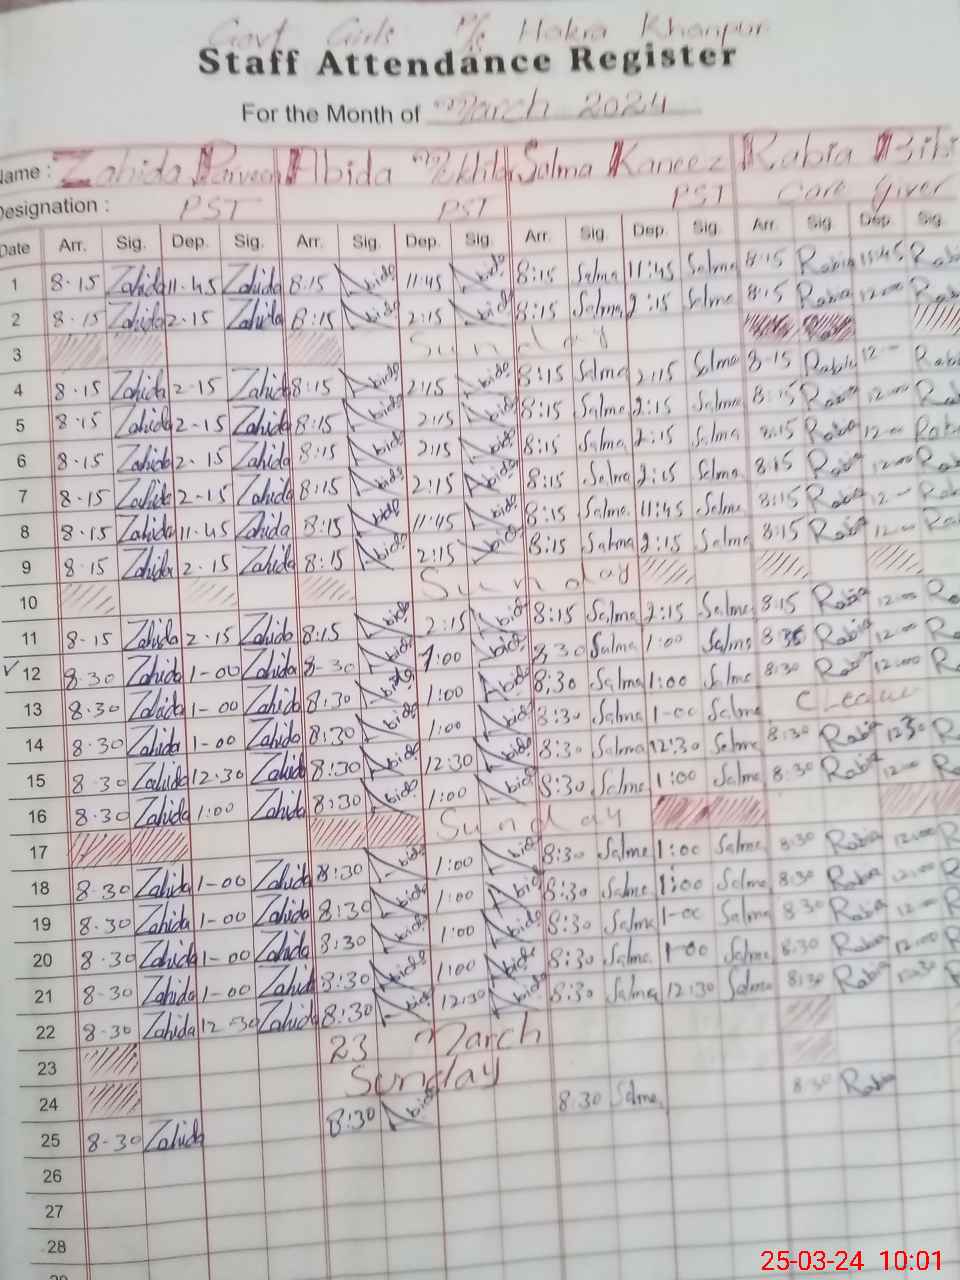 Govt Girls P/S Hakra Khanpur
Staff Attendance Register
For the Month of March 2024
Name : Zahida Parveen Abida Salma Kaneez Rabia Bibi
Designation : PST PST PST Care Giver
Date Arr. Sig. Dep. Sig. Arr. Sig. Dep. Sig. Arr. Sig. Dep. Sig. Arr. Sig. Dep. Sig.
1 8-15 Zahida 11-45 Zahida 8:15 Abida 11:45 Abida 8:15 Salma 11:45 Salma 8:15 Rabia 11:45 Rabi
2 8-15 Zahida 2-15 Zahida 8:15 Abida 2:15 Abida 8:15 Salma 2:15 Salma 8:15 Rabia 12:00 Rab
3 Sunday
4 8-15 Zahida 2-15 Zahida 8:15 Abida 2:15 Abida 8:15 Salma 2:15 Salma 8-15 Rabia 12- Rab
5 8-15 Zahida 2-15 Zahida 8:15 Abida 2:15 Abida 8:15 Salma 2:15 Salma 8:15 Rabia 12:00 Rab
6 8-15 Zahida 2-15 Zahida 8:15 Abida 2:15 Abida 8:15 Salma 2:15 Salma 8:15 Rabia 12- Rab
7 8-15 Zahida 2-15 Zahida 8:15 Abida 2:15 Abida 8:15 Salma 2:15 Salma 8:15 Rabia 12:00 Ra
8 8-15 Zahida 11-45 Zahida 8:15 Abida 11:45 Abida 8:15 Salma 11:45 Salma 8:15 Rabia 12- Ra
9 8-15 Zahida 2-15 Zahida 8:15 Abida 2:15 Abida 8:15 Salma 2:15 Salma 8:15 Rabia 12:00 Ra
10 Sunday
11 8-15 Zahida 2-15 Zahida 8:15 Abida 2:15 Abida 8:15 Salma 2:15 Salma 8:15 Rabia 12:00 Ra
✓ 12 8-30 Zahida 1-00 Zahida 8-30 Abida 1:00 Abida 8:30 Salma 1:00 Salma 8 30 Rabia 12:00 Ra
13 8-30 Zahida 1-00 Zahida 8:30 Abida 1:00 Abida 8:30 Salma 1:00 Salma 8:30 Rabia 12:00 R
14 8-30 Zahida 1-00 Zahida 8:30 Abida 1:00 Abida 8:30 Salma 1-00 Salma C Leave
15 8-30 Zahida 12-30 Zahida 8:30 Abida 12:30 Abida 8:30 Salma 12:30 Salma 8:30 Rabia 12:30 R
16 8-30 Zahida 1:00 Zahida 8:30 Abida 1:00 Abida 8:30 Salma 1:00 Salma 8:30 Rabia 12:00 Ra
17 Sunday
18 8-30 Zahida 1-00 Zahida 8:30 Abida 1:00 Abida 8:30 Salma 1:00 Salma 8:30 Rabia 12:00 R
19 8-30 Zahida 1-00 Zahida 8:30 Abida 1:00 Abida 8:30 Salma 1:00 Salma 8:30 Rabia 12:00 R
20 8-30 Zahida 1-00 Zahida 8:30 Abida 1:00 Abida 8:30 Salma 1-00 Salma 8:30 Rabia 12:00 R
21 8-30 Zahida 1-00 Zahida 8:30 Abida 1:00 Abida 8:30 Salma 1 00 Salma 8:30 Rabia 12:00 R
22 8-30 Zahida 12-30 Zahida 8:30 Abida 12:30 Abida 8:30 Salma 12:30 Salma 8:30 Rabia 12:30 R
23 23 March
24 Sunday
25 8-30 Zahida 8:30 Abida 8:30 Salma 8:30 Rabia
26
27
28
25-03-24 10:01